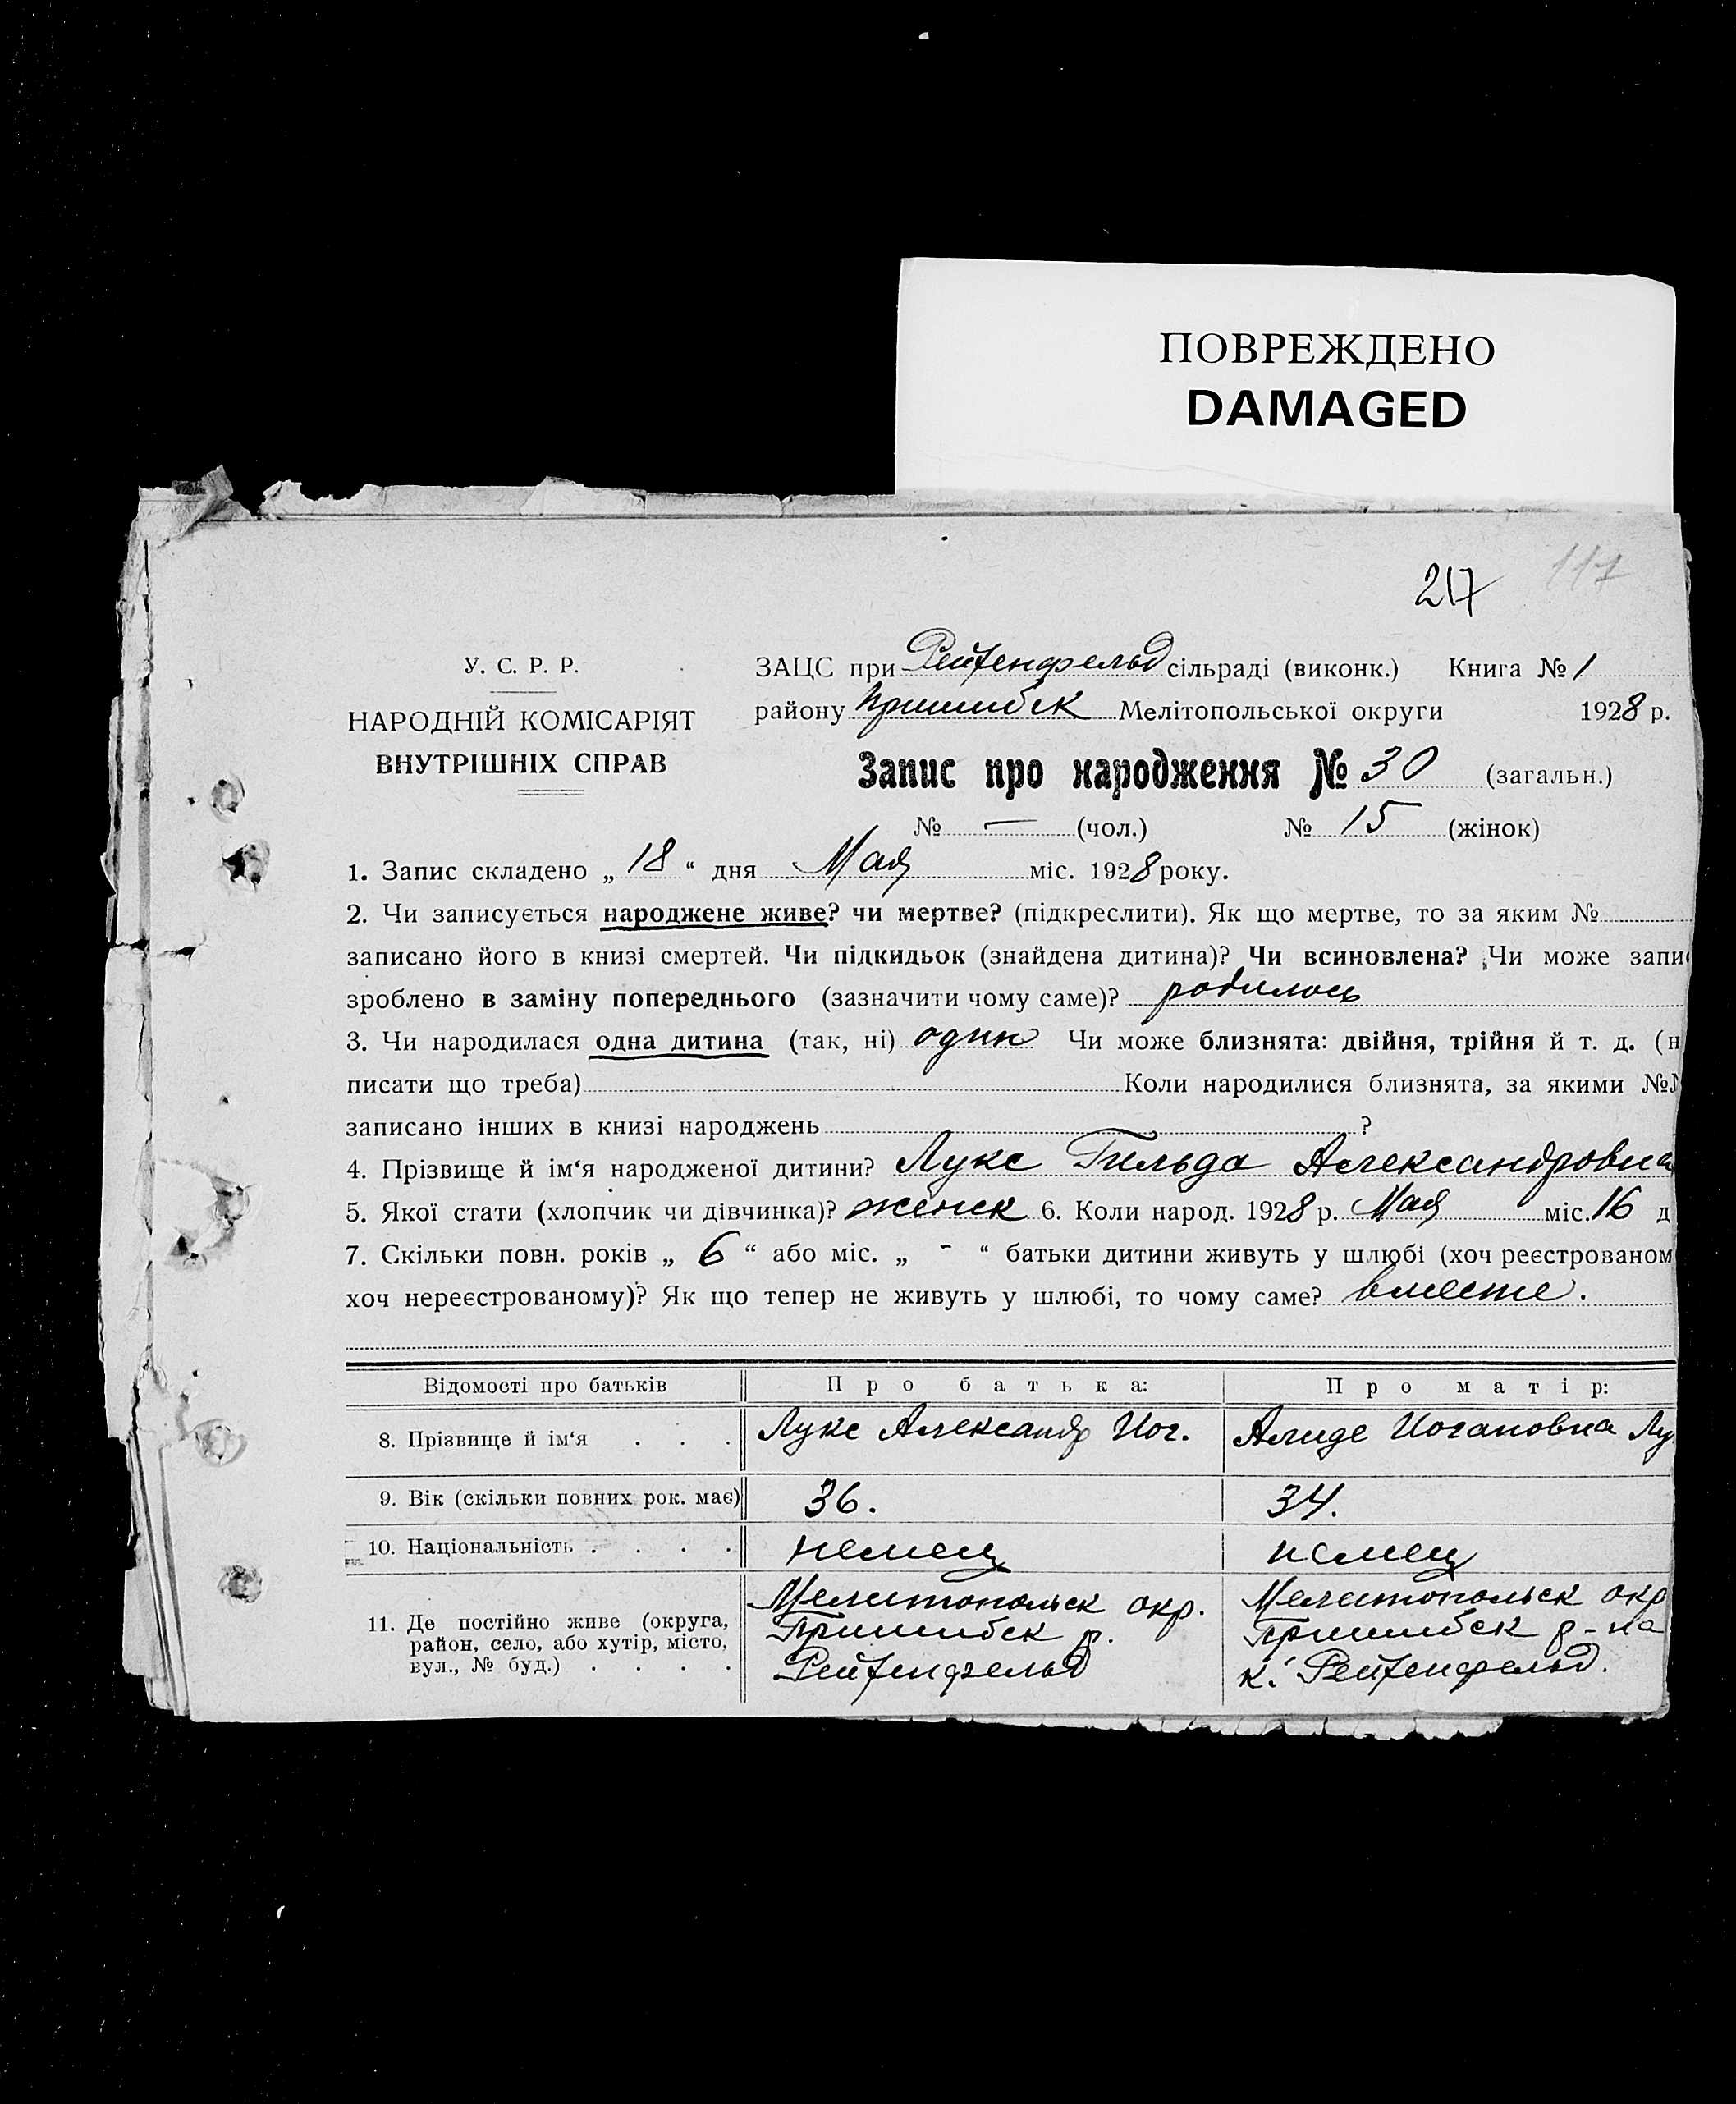 ПОВРЕЖДЕНО
DAMAGED
217 117
У. С. Р. Р.
НАРОДНІЙ КОМІСАРІЯТ
ВНУТРІШНІХ СПРАВ
ЗАЦС при Рейхенфельд сільраді (виконк.) Книга № 1
району Пришибск Мелітопольської округи 1928 р.
Запис про народження № 30 (загальн.)
№ — (чол.) № 15 (жінок)
1. Запис складено „ 18 “ дня Мая міс. 1928 року.
2. Чи записується народжене живе? чи мертве? (підкреслити). Як що мертве, то за яким №
записано його в книзі смертей. Чи підкидьок (знайдена дитина)? Чи всиновлена? Чи може запи
зроблено в заміну попереднього (зазначити чому саме)? родилось
3. Чи народилася одна дитина (так, ні) один Чи може близнята: двійня, трійня й т. д. (н
писати що треба) Коли народилися близнята, за якими №№
записано інших в книзі народжень ?
4. Прізвище й ім‘я народженої дитини? Лукс Гильда Александровна
5. Якої стати (хлопчик чи дівчинка)? женск 6. Коли народ. 1928 р. Мая міс. 16 д
7. Скільки повн. років „ 6 “ або міс. „ - “ батьки дитини живуть у шлюбі (хоч реєстрованом
хоч нереєстрованому)? Як що тепер не живуть у шлюбі, то чому саме? вместе.
Відомості про батьків Про батька: Про матір:
8. Прізвище й ім‘я . . . Лукс Александр Иог. Алиде Иогановна Лу
9. Вік (скільки повних рок. має) 36. 34.
10. Національність . . . . немец немец
11. Де постійно живе (округа, район, село, або хутір, місто, вул., № буд.) . . . .
Мелитопольск окр. Мелитопольск окр
Пришибск р. Пришибск р-на
Рейхенфельд к. Рейхенфельд.